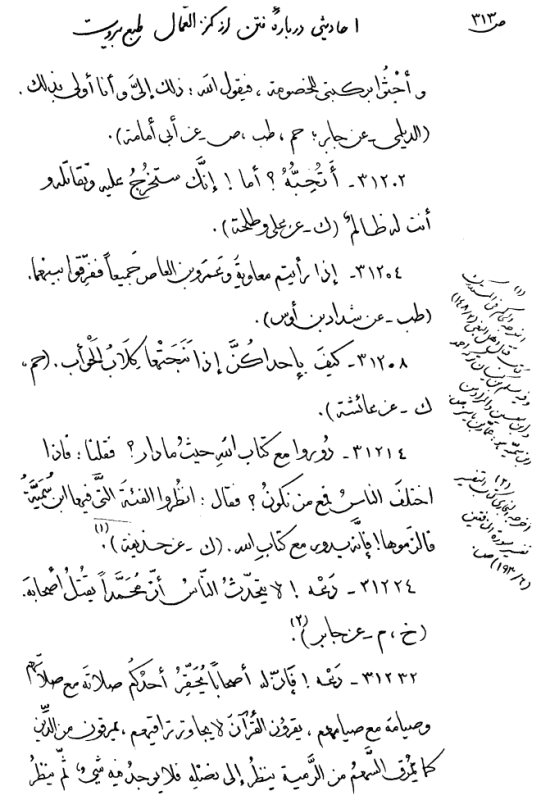 ص ٣١٣
احادیثی دربارهٔ فتن از کنز العمال طبع بیروت
و أجْثُوا بركبتي للخصومة ، فيقول الله : ذلك إليَّ و أنا أولى بذلك .
(الديلمي - عن جابر ؛ حم ، طب ، ص عن أبي أمامة) .
٣١٢٠٢ - أتُحِبُّهُ ؟ أما ! إنَّك ستخرُجُ عليه وتقاتله و
أنت له ظالمٌ (ك - عن علي وطلحة) .
٣١٢٠٤ - إذا رأيتم معاوية وعمرو بن العاص جميعاً ففرِّقوا بينهما .
(طب - عن شداد بن أوس) .
٣١٢٠٨ - كيفَ بإحداكُنَّ إذا نَبَحَتْها كِلَابُ الحَوأب . (حم ،
ك - عن عائشة) .
٣١٢١٤ - دُوروا مع كتاب الله حيثُما دار ؟ فقلنا : فاذا
اختلفَ الناسُ فمع من نكونُ ؟ فقال : انظُروا الفئةَ التي فيها ابنُ سُمَيَّةُ
فالزَموها ! فإنَّه يدور مع كتابِ الله . (ك - عن حذيفة) (١) .
٣١٢٢٤ - دَعْه ! لا يتحدَّثُ النّاسُ أنَّ مُحَمَّداً يقتُلُ أصْحابَهُ .
(خ ، م - عن جابر) (٢) .
٣١٢٣٢ - دَعْه ! فإنَّ له أصحاباً يُحَقِّرُ أحدُكُم صلاتَه مع صلاتهم
وصيامَه مع صيامهم ، يقرؤن القُرْآنَ لا يجاوز تراقيهم ، يمرقون من الدِّينِ
كما يَمْرُقُ السَّهمُ من الرَّمية ينظُرُ إلى نصلِهِ فلا يوجدُ فيه شيءٌ ، ثمَّ ينظُرُ
(١)
(٢)
أخرجه البخاري كتاب التفسير
تفسير سورة المنافقين
(١٩٣/٦) ص .